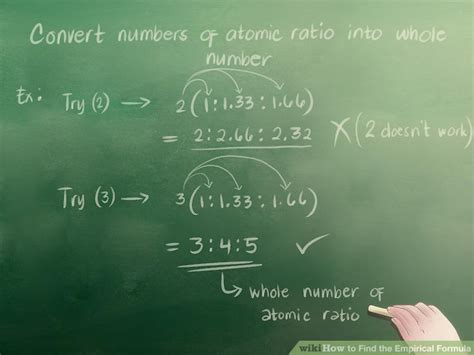 Convert numbers of atomic ratio into whole
number
Ex: Try (2) → 2(1:1.33:1.66)
= 2:2.66:2.32 X (2 doesn't work)
Try (3) → 3(1:1.33:1.66)
= 3:4:5 ✓
→ whole number of
atomic ratio
wikiHow to Find the Empirical Formula